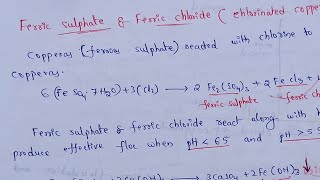 Ferric sulphate & Ferric chloride ( chlorinated copper
Copperas (ferrous sulphate) reacted with chlorine to
copperas.
6 (FeSO4 7H2O)+3(Cl2) ⟶ 2 Fe2(SO4)3 + 2 FeCl3 +
ferric sulphate ferric ch
Ferric sulphate & ferric chloride react along with
produce effective floc when pH < 65 and pH > 5
⟶ 3CaSO4 + 2Fe(OH)3↓